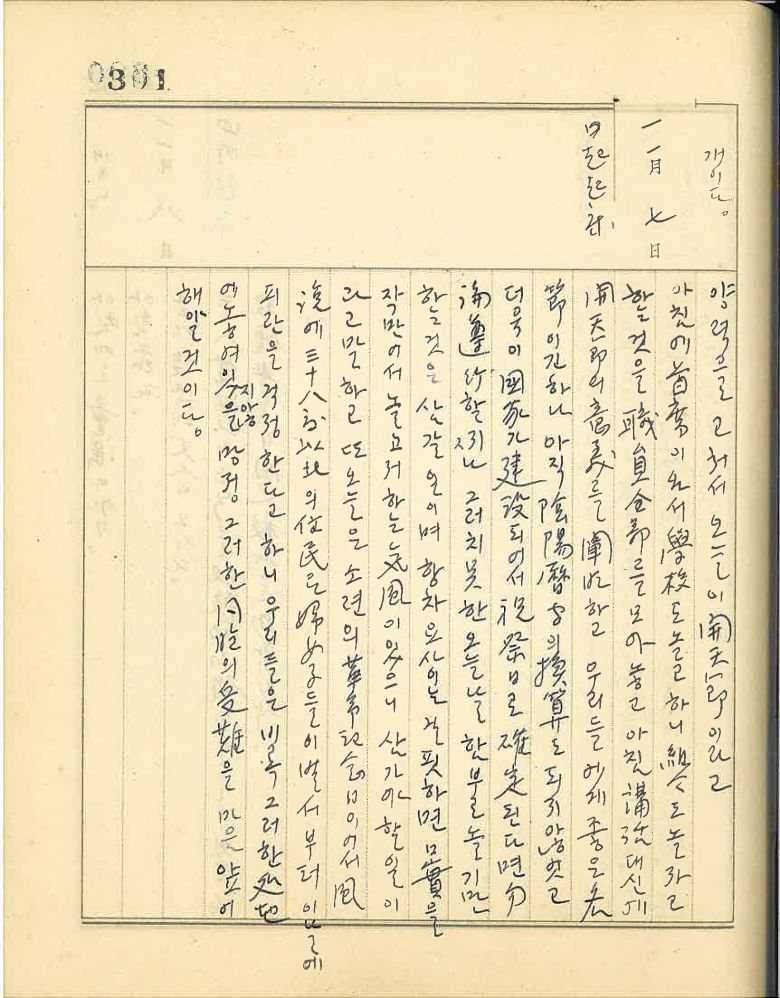 0301
개이다。
一一月 七 日
양력으로 고쳐서 오늘이 開天節이라고
아침에 首席이 와서 學校도 놀고 하니 組合도 놀라고
하는 것을 職員 全部를 모아 놓고 아침 講話 대신에
開天節의 意義를 闡明하고 우리들에게 좋은 名
節이긴 하나 아직 陰陽曆 의 換算도 되지 않엇고
더욱이 國家가 建設되어서 祝祭日로 確定된다면 勿
論 遵行할 지나 그러치 못한 오늘날 함부로 놀기만
하는 것은 삼갈 일이며 항차 요사이는 걸핏하면 口實을
작만어서 놀고저 하는 氣風이 있으니 삼가야 할 일이
라고 말하고 또 오늘은 소련의 革命記念日이어서 風
說에 三十八 以北의 住民은 婦女子들이 벌서부터 이
피란을 걱정한다고 하니 우리들은 비록 그러한 處地
에 놓여 있을지 망정 그러한 同胞의 受難을 마음 앞에
해일 것이다。